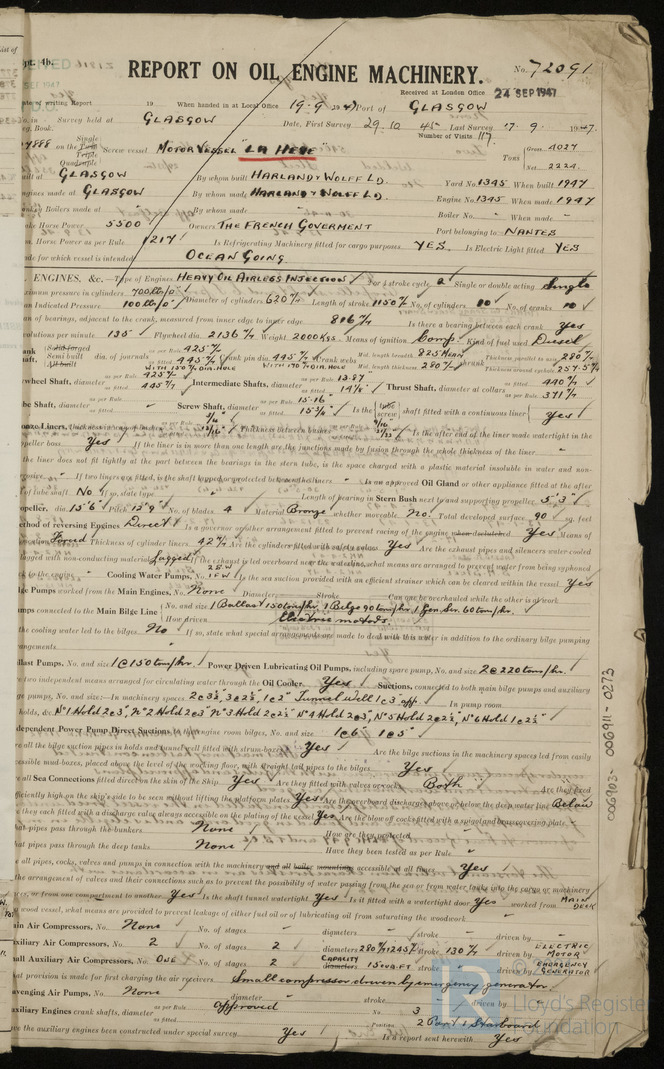 Rpt. 4b.
REPORT ON OIL ENGINE MACHINERY.
No. 72091
Received at London Office 24 SEP 1947
Date of writing Report 19 When handed in at Local Office 19-9-1947 Port of GLASGOW
Survey held at GLASGOW Date, First Survey 29.10.45 Last Survey 17-9-1947.
Reg. Book. Number of Visits 117
Single
on the Twin Triple Quadruple Screw vessel MOTOR VESSEL "LA HEVE" Tons Gross 4027 Net 2224
Built at GLASGOW By whom built HARLAND & WOLFF LD. Yard No. 1345 When built 1947
Engines made at GLASGOW By whom made HARLAND & WOLFF LD. Engine No. 1345 When made 1947
Donkey Boilers made at By whom made Boiler No. When made
Brake Horse Power 5500 Owners THE FRENCH GOVERMENT Port belonging to NANTES
Nom. Horse Power as per Rule 1217 Is Refrigerating Machinery fitted for cargo purposes YES. Is Electric Light fitted YES
Trade for which vessel is intended OCEAN GOING
ENGINES, &c.—Type of Engines HEAVY OIL AIRLESS INJECTION 2 or 4 stroke cycle 2 Single or double acting Single
Maximum pressure in cylinders 700 lb/□" Diameter of cylinders 620 m/m Length of stroke 1150 m/m No. of cylinders 10 No. of cranks 10
Mean Indicated Pressure 100 lb/□"
Span of bearings, adjacent to the crank, measured from inner edge to inner edge 816 m/m Is there a bearing between each crank Yes
Revolutions per minute 135 Flywheel dia. 2136 m/m Weight 2000 KGS. Means of ignition Comp. Kind of fuel used Diesel
Crank Shaft, Solid forged Semi built All built dia. of journals as per Rule 425 m/m as fitted 445 m/m Crank pin dia. 445 m/m Crank webs Mid. length breadth 825 MEAN Mid. length thickness 280 m/m shrunk Thickness parallel to axis 280 m/m Thickness around eyehole 257.5 m/m
WITH 150 m/m DIA. HOLE WITH 170 m/m DIA. HOLE
Flywheel Shaft, diameter as per Rule 425 m/m as fitted 445 m/m Intermediate Shafts, diameter as per Rule 13.87 as fitted 14 1/8" Thrust Shaft, diameter at collars as per Rule 440 m/m as fitted 371 m/m
Tube Shaft, diameter as per Rule as fitted Screw Shaft, diameter as per Rule 15.16" as fitted 15 5/8" Is the tube screw shaft fitted with a continuous liner Yes
Bronze Liners, thickness in way of bushes as per Rule as fitted Thickness between bushes as per Rule as fitted Is the after end of the liner made watertight in the
propeller boss Yes If the liner is in more than one length are the junctions made by fusion through the whole thickness of the liner
If the liner does not fit tightly at the part between the bearings in the stern tube, is the space charged with a plastic material insoluble in water and non-
corrosive If two liners are fitted, is the shaft lapped or protected between the liners Is an approved Oil Gland or other appliance fitted at the after
end of tube shaft. No If so, state type Length of bearing in Stern Bush next to and supporting propeller 5' 3"
Propeller, dia. 15' 6" Pitch 13' 9" No. of blades 4 Material Bronze whether moveable No. Total developed surface 90 sq. feet
Method of reversing Engines Direct Is a governor or other arrangement fitted to prevent racing of the engine when declutched Yes Means of
lubrication Forced Thickness of cylinder liners 42 m/m Are the cylinders fitted with safety valves Yes Are the exhaust pipes and silencers water cooled
or lagged with non-conducting material Lagged If the exhaust is led overboard near the waterline, what means are arranged to prevent water from being syphoned
back to the engine Cooling Water Pumps, No. 2 S.W 1 F.W Is the sea suction provided with an efficient strainer which can be cleared within the vessel Yes
Bilge Pumps worked from the Main Engines, No. None Diameter Stroke Can one be overhauled while the other is at work
Pumps connected to the Main Bilge Line No. and size 1 Ballast 150 tons/hr. 1 Bilge 90 tons/hr. 1 Gen. Ser. 60 tons/hr.
How driven Electric motors.
Is the cooling water led to the bilges. No If so, state what special arrangements are made to deal with this water in addition to the ordinary bilge pumping
arrangements.
Ballast Pumps, No. and size 1 @ 150 tons/hr. Power Driven Lubricating Oil Pumps, including spare pump, No. and size 2 @ 220 tons/hr.
Are two independent means arranged for circulating water through the Oil Cooler. Yes Suctions, connected to both main bilge pumps and auxiliary
bilge pumps, No. and size:—In machinery spaces 2 @ 3½", 3 @ 2½", 1 @ 2" Tunnel Well 1 @ 3" aft. In pump room
In holds, &c. No 1 Hold 2 @ 3", No 2 Hold 2 @ 3" No 3 Hold 2 @ 2½" No 4 Hold 2 @ 3", No 5 Hold 2 @ 2½", No 6 Hold 1 @ 2½"
Independent Power Pump Direct Suctions to the engine room bilges, No. and size 1 @ 6" 1 @ 5"
Are all the bilge suction pipes in holds and tunnel well fitted with strum-boxes Yes Are the bilge suctions in the machinery spaces led from easily
accessible mud-boxes, placed above the level of the working floor, with straight tail pipes to the bilges Yes
Are all Sea Connections fitted direct on the skin of the Ship Yes Are they fitted with valves or cocks Both Are they fixed
sufficiently high on the ship's side to be seen without lifting the platform plates Yes Are the overboard discharges above or below the deep water line Below
Are they each fitted with a discharge valve always accessible on the plating of the vessel Yes Are the blow off cocks fitted with a spigot and brass covering plate
What pipes pass through the bunkers None How are they protected
What pipes pass through the deep tanks None Have they been tested as per Rule
Are all pipes, cocks, valves and pumps in connection with the machinery and all boiler mountings accessible at all times Yes
Is the arrangement of valves and their connections such as to prevent the possibility of water passing from the sea or from water tanks into the cargo or machinery
spaces, or from one compartment to another Yes Is the shaft tunnel watertight Yes Is it fitted with a watertight door Yes worked from MAIN DECK
If a wood vessel, what means are provided to prevent leakage of either fuel oil or of lubricating oil from saturating the woodwork
Main Air Compressors, No. None No. of stages diameters stroke driven by
Auxiliary Air Compressors, No. 2 No. of stages 2 diameters 280 m/m & 245 m/m stroke 130 m/m driven by ELECTRIC MOTOR
Small Auxiliary Air Compressors, No. ONE No. of stages 2 CAPACITY diameters 15 CU.FT stroke driven by EMERGENCY GENERATOR
What provision is made for first charging the air receivers Small compressor driven by emergency generator.
Scavenging Air Pumps, No. None diameter stroke driven by
Auxiliary Engines crank shafts, diameter as per Rule as fitted approved No. 3 Position 2 Port 1 Starboard
Have the auxiliary engines been constructed under special survey Yes Is a report sent herewith Yes
006903-006911-0273
© 2020
Lloyd's Register
Foundation